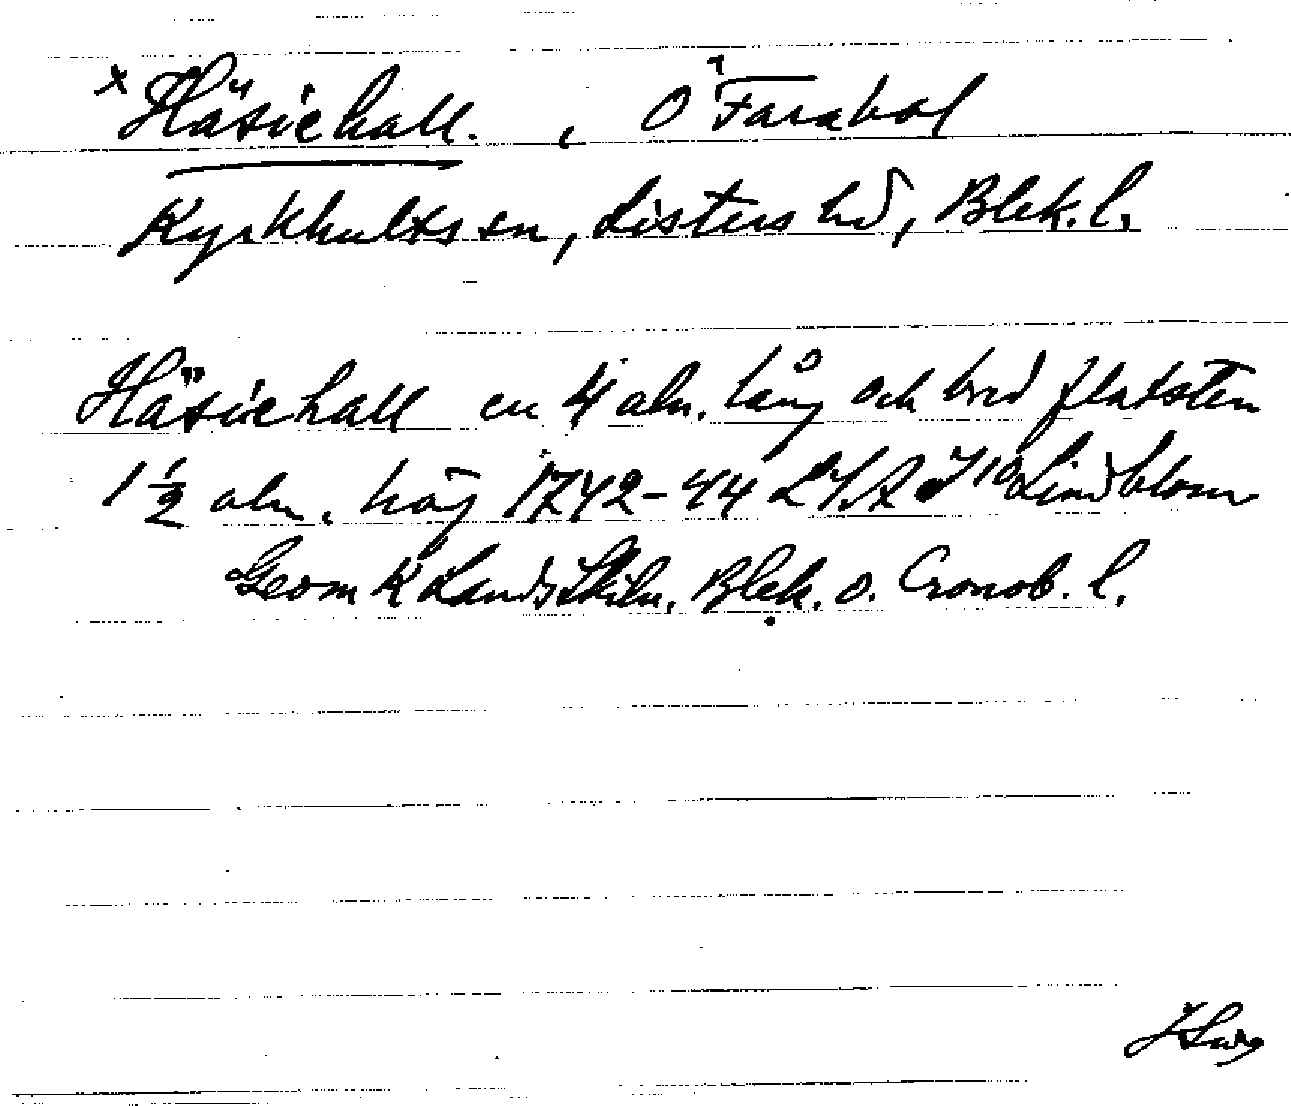 x Häsiehall. , O Farabol
Kyrkhults sn, Listers hd, Blek. l.
Häsiehall en 4 aln. lång och bred flatsten
1 1/2 aln. hög 1742-44 LSA Lindblom
Geom K Lands Skiln. Blek. o. Cronob. l.